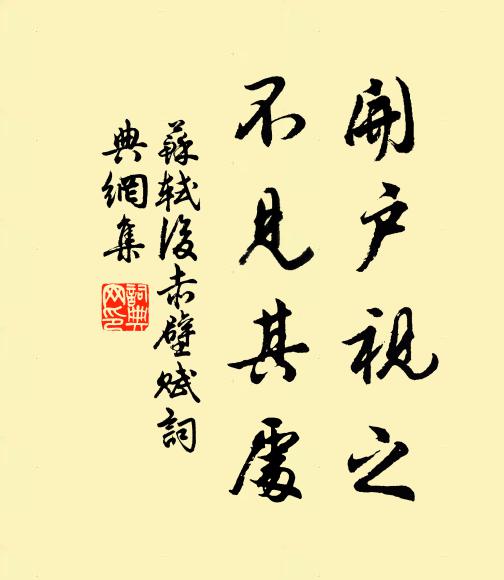 開户視之
不見其處
蘇軾後赤壁賦詞
典網集
詞典
网印